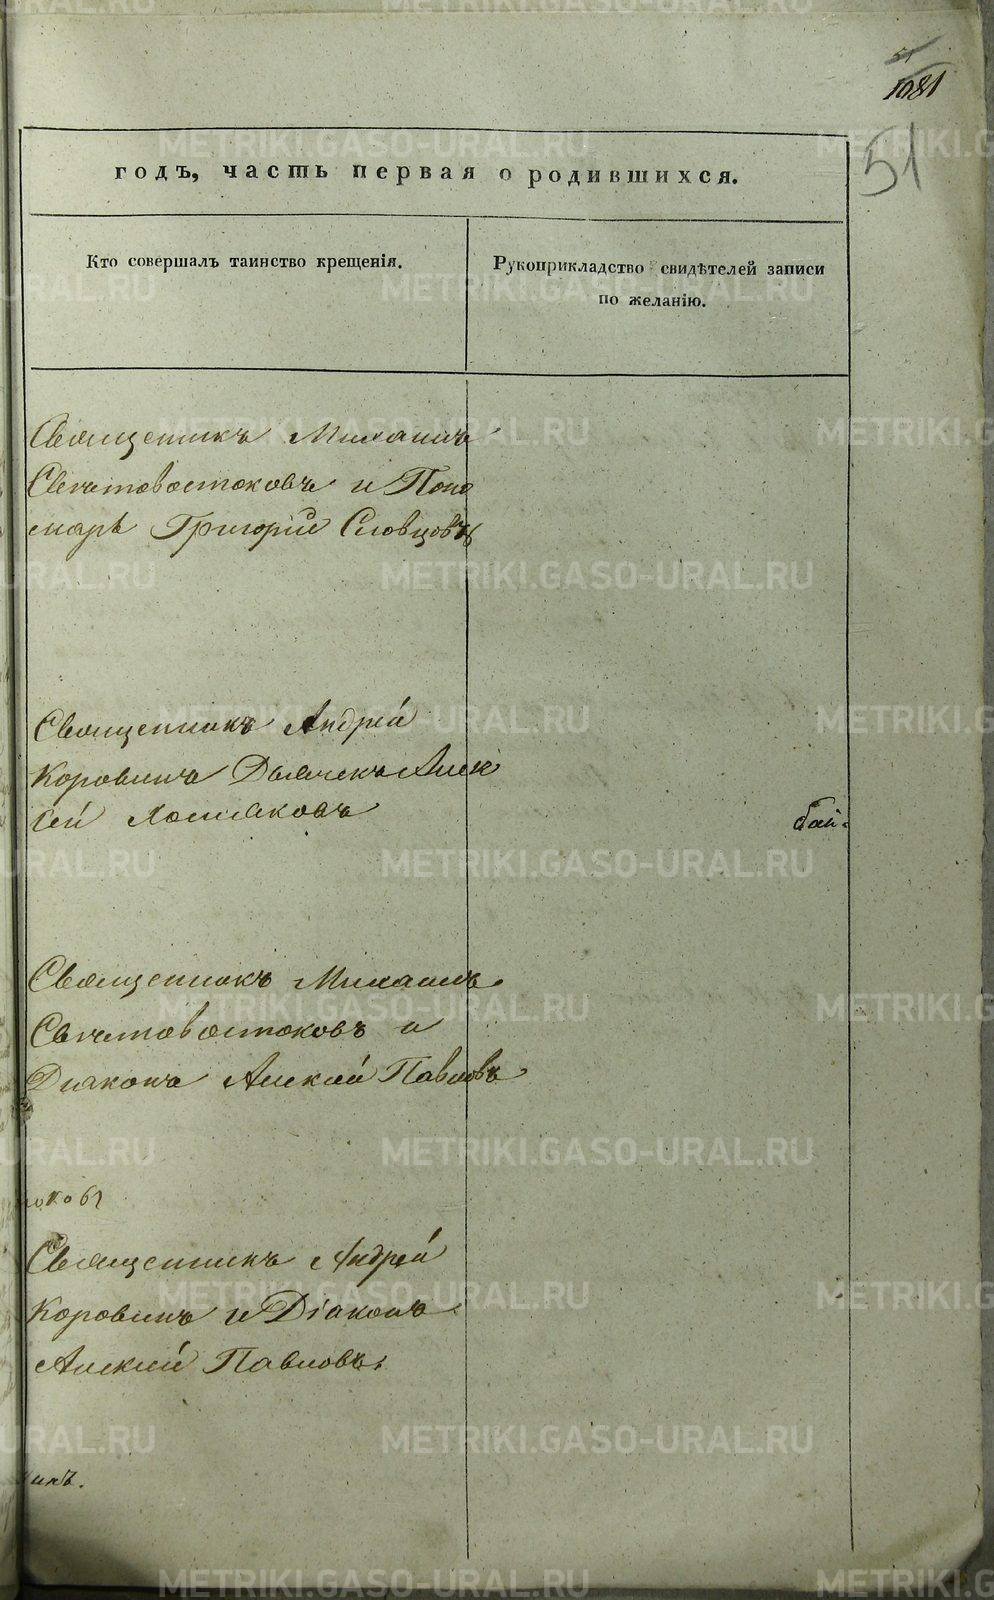 51
1081
51
годъ, часть первая о родившихся.
Кто совершалъ таинство крещенія.
Рукоприкладство свидѣтелей записи
по желанію.
Священникъ Михаилъ
Свѣтовостоковъ и Поно
марь Григорій Словцовъ
Священникъ Андрей
Коровинъ Дьячекъ Алек
сѣй Хомяковъ
бай-
Священникъ Михаилъ
Свѣтовостоковъ и
Діаконъ Алексій Павловъ
Священникъ Андрей
Коровинъ и Діаконъ
Алексій Павловъ.
METRIKI.GASO-URAL.RU